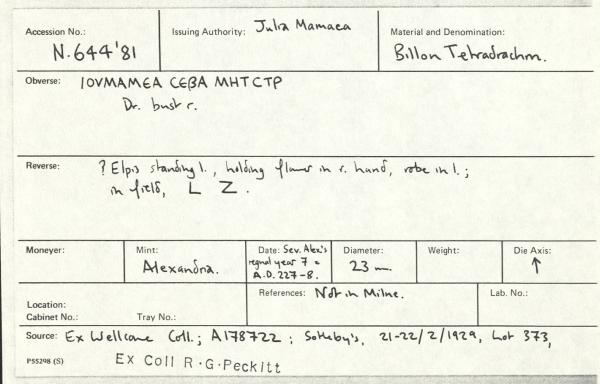 Accession No.: N.644'81
Issuing Authority: Julia Mamaea
Material and Denomination: Billon Tetradrachm.
Obverse: IOVMAMEA CEBA MHTCTP
Dr. bust r.
Reverse: ? Elpis standing l., holding flower in r. hand, robe in l.;
in field, L Z.
Moneyer:
Mint: Alexandria.
Date: Sev. Alex's
regnal year 7 =
A.D. 227-8.
Diameter: 23 mm.
Weight:
Die Axis: ↑
Location:
Cabinet No.: Tray No.:
References: Not in Milne.
Lab. No.:
Source: Ex Wellcome Coll.; A178722; Sotheby's, 21-22/2/1929, Lot 373,
P55298 (S) Ex Coll R.G.Peckitt